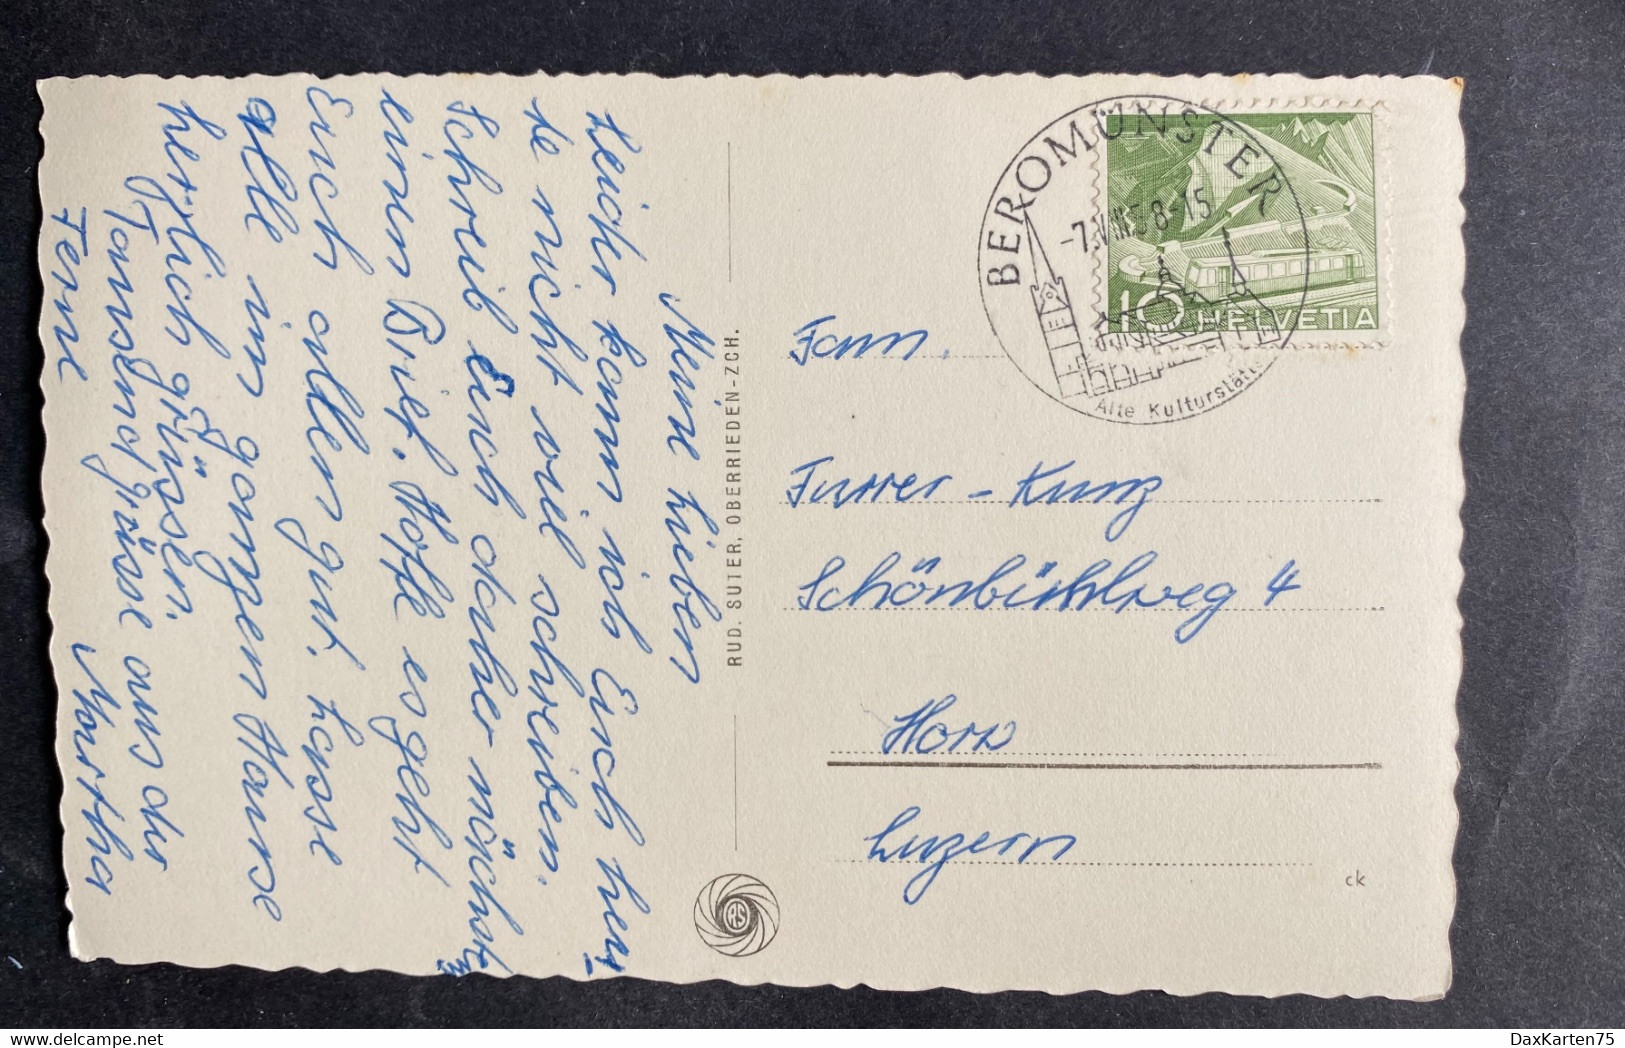 Meine Lieben
Leider kann ich Euch heu-
te nicht viel schreiben.
Schreib Euch daher nächstz
einen Brief. Hoffe es geht
Euch allen gut. Lasse
alle im ganzen Hause
herzlich grüssen.
Tausend grüsse aus der
Ferne Martha
RUD. SUTER, OBERRIEDEN-ZCH.
RS
BEROMÜNSTER
-7.VIII.58-15
Alte Kulturstätte
10 HELVETIA
Fam.
Furrer - Kunz
Schönbühlweg 4
Horw
Luzern
ck
DaxKarten75